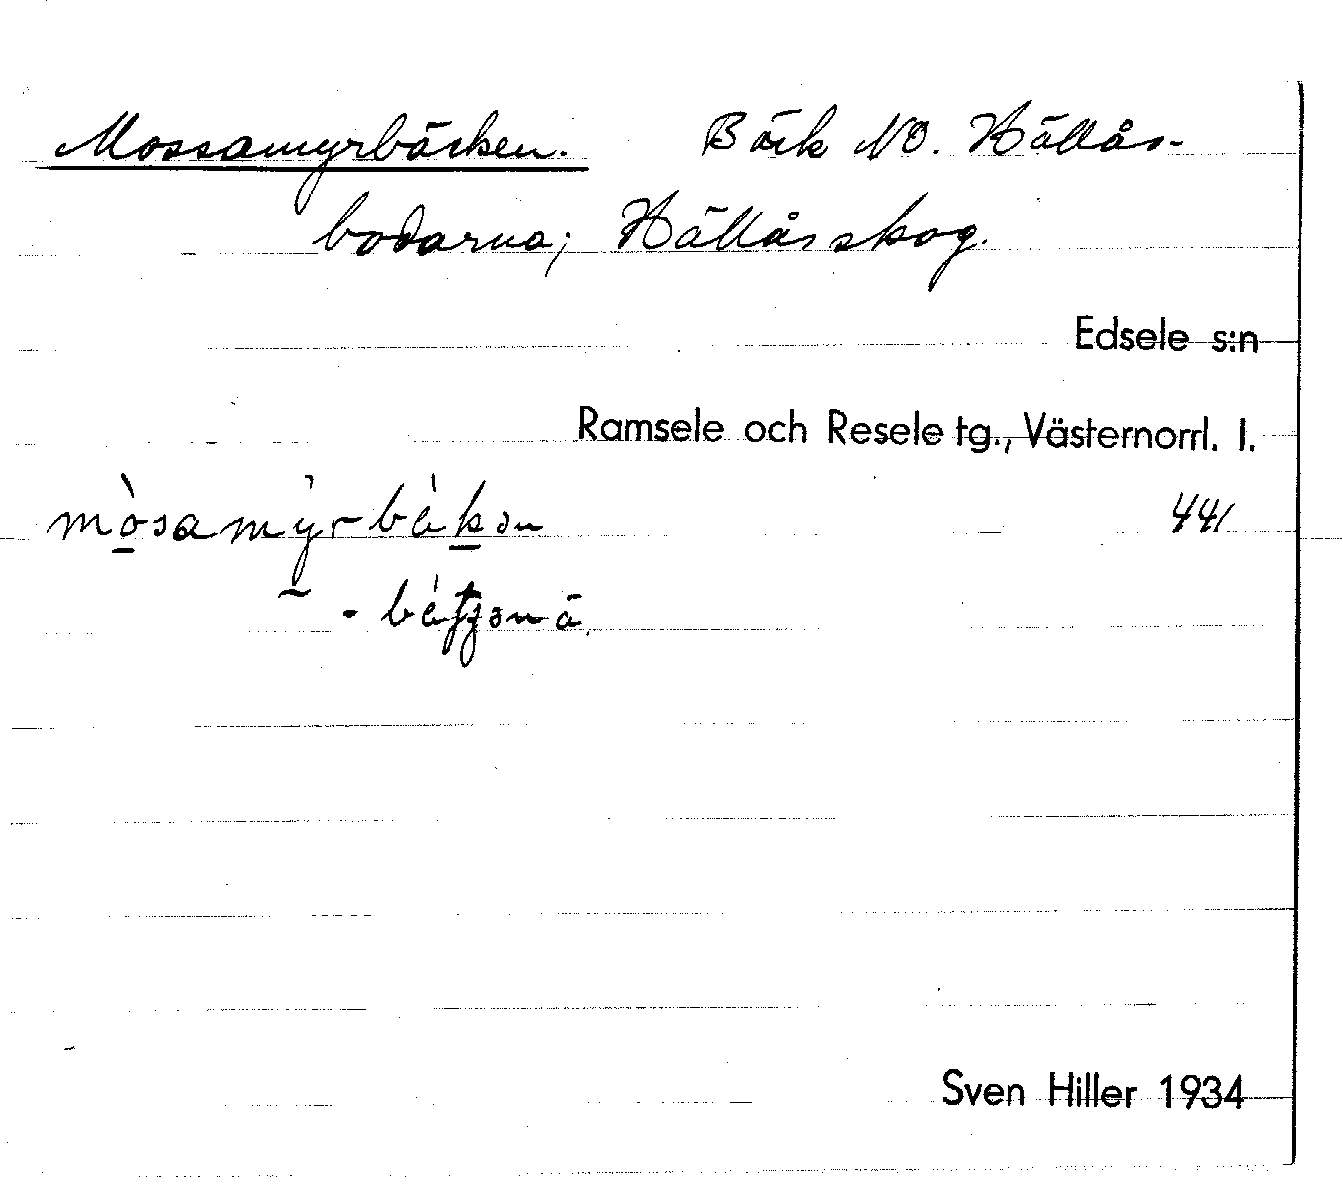 Mossamyrbäcken. Bäck NO. Hällås-
bodarna; Hällåsskog.
Edsele s:n
Ramsele och Resele tg., Västernorrl. l.
mòsamỳrbàkən 441
~ -bàtʒənä.
Sven Hiller 1934